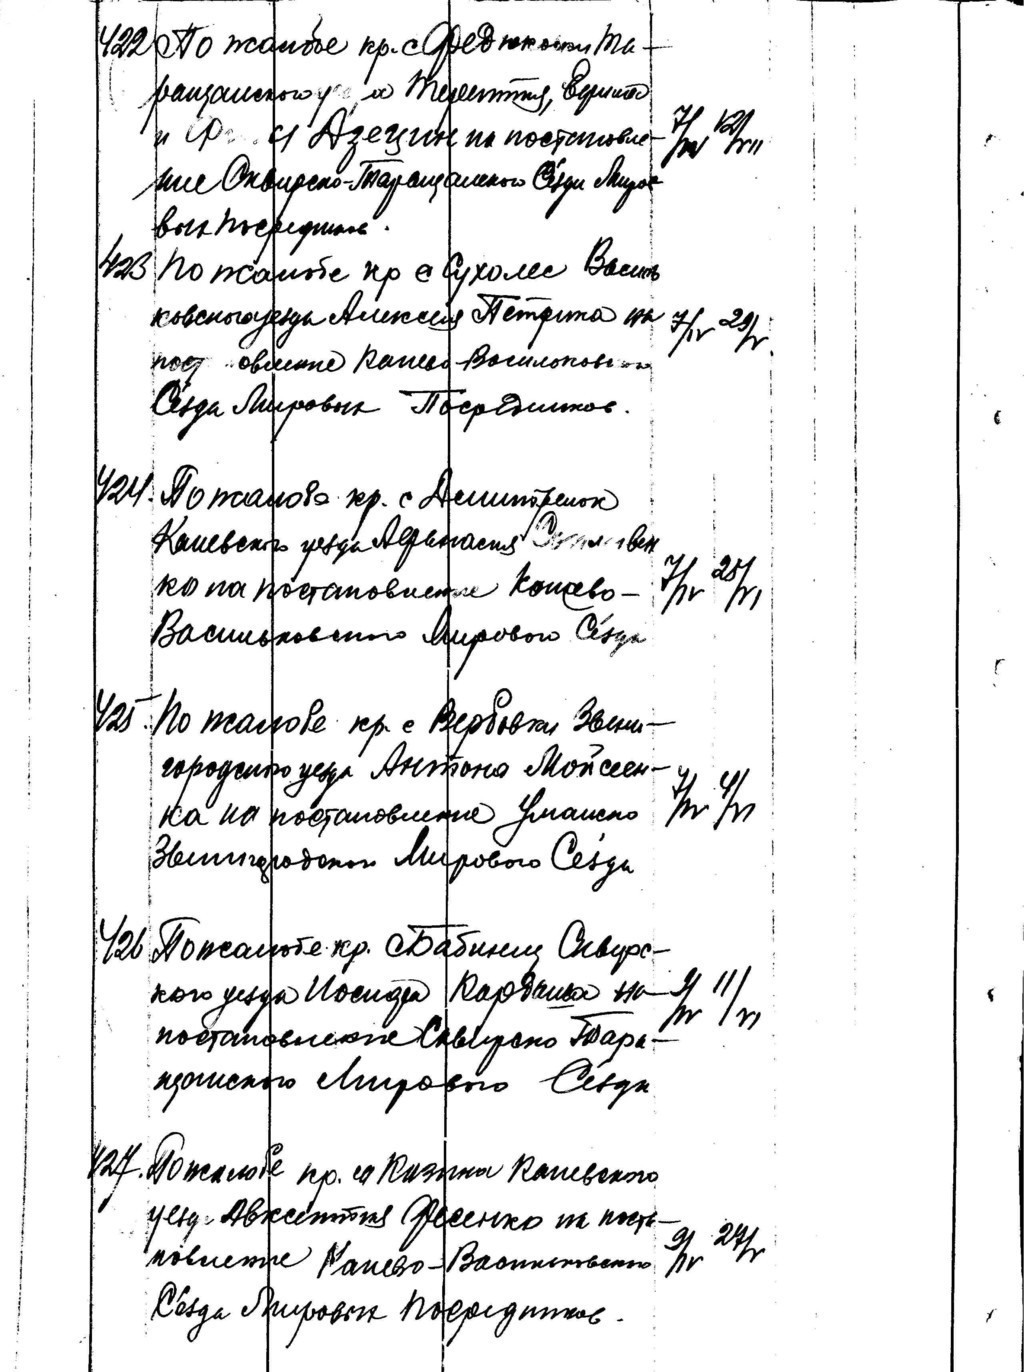 422 По жалобе кр. с Федюковки Та-
ращанского Терентия,
и на постановле- 7/IV 12/VII
ние Сквирско-Таращанского Сезда Миро-
вых Посредников.
423 По жалобе кр с Сухолес Василь
ковского уезда Алексея Петрика на 7/IV 29/V.
пост овление Канево-Васильковского
Сезда Мировых Посредников.
424. По жалобе кр. с
Каневского уезда Афанасия
ко на постановление Канево- 7/IV 25/VI
Васильковского Мирового Сезда
425. По жалобе кр. с Вербовки Звени-
городского уезда Антона Мойсеен-
ка на постановление Уманско 7/IV 4/VI
Звенигородского Мирового Сезда
426 По жалобе кр. с Бабинец Сквирс-
кого уезда Иосифа на 9/IV 11/VI
постановление Сквирско Тара-
щанского Мирового Сезда
427. По жалобе кр. с Казина Каневского
уезд. Авксентия Фесенко на поста-
новление Канево-Васильковского 9/IV 27/V
Сезда Мировых Посредников.